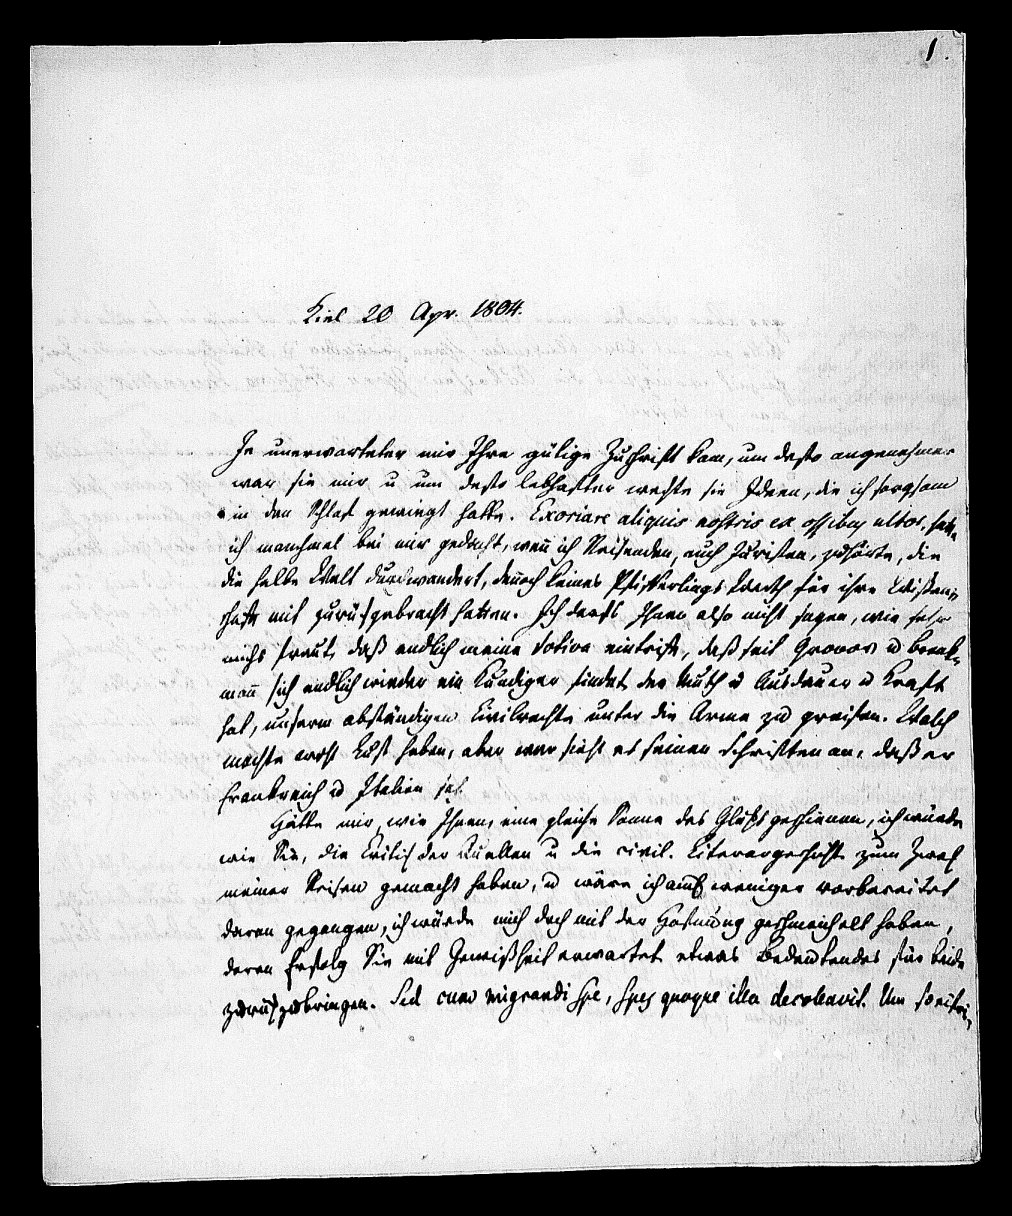 1.
Kiel 20 Apr. 1804.
Je unerwarteter mir Ihre gütige Zuschrift kam, um desto angenehmer
war sie mir u um desto lebhafter weckte sie Ideen, die ich sorgsam
in den Schlaf gewiegt hatte. Exoriare aliquis nostris ex ossibus ultor, hatte
ich manchmal bei mir gedacht, wenn ich Reisenden, auch Juristen, zuhörte, die
die halbe Welt durchwandert, dennoch keines Pfifferlings Werth für ihre Wissen-
schaft mit zurückgebracht hatten. Ich darfs Ihnen also nicht sagen, wie sehr
michs freut, daß endlich meine votiva eintrifft, daß seit Gronov u Brenk-
mann sich endlich wieder ein Kundiger findet, der Muth u Ausdauer u Kraft
hat, unserm abständigen Civilrechte unter die Arme zu greifen. Walch
mochte wohl Lust haben, aber wer sieht es seinen Schriften an, daß er
Frankreich u Italien sah.
Hätte mir, wie Ihnen, eine gleiche Sonne des Glücks geschienen, ich würde
wie Sie, die Critik der Quellen u die civil. Literargeschichte zum Zweck
meiner Reisen gemacht haben, u wäre ich auch weniger vorbereitet
daran gegangen, ich würde mich doch mit der Hofnung geschmeichelt haben,
deren Erfolg Sie mit Gewißheit erwartet etwas Bedeutendes für beide
zurückzubringen. Sed cum migrandi spe, spes quoque illa decolavit. Um